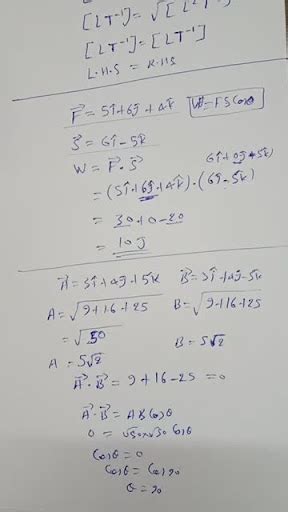 [LT⁻¹] = √[L²T⁻²]
[LT⁻¹] = [LT⁻¹]
L.H.S = R.HS
F⃗ = 5î+6ĵ+4k̂ W=FScosθ
S⃗ = 6î-5k̂
W = F⃗.S⃗ 6î+0ĵ-5k̂
= (5î+6ĵ+4k̂).(6î-5k̂)
= 30+0-20
= 10J
A⃗=3î+4ĵ+5k B⃗=3î+4ĵ-5k
A=√9+16+25 B=√9+16+25
=√50
A = 5√2 B=5√2
A⃗.B⃗ = 9+16-25 =0
A⃗.B⃗ = ABCosθ
0 = √50×√50 Cosθ
Cosθ = 0
Cosθ = Cos90
θ = 90